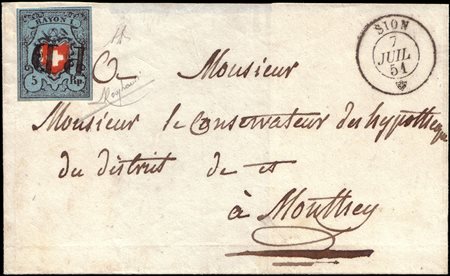 RAYON I
5 Rp.
SION
7
JUIL
51
A Monsieur
Monsieur le Conservateur des hypotheques
du district de et
à Monthey